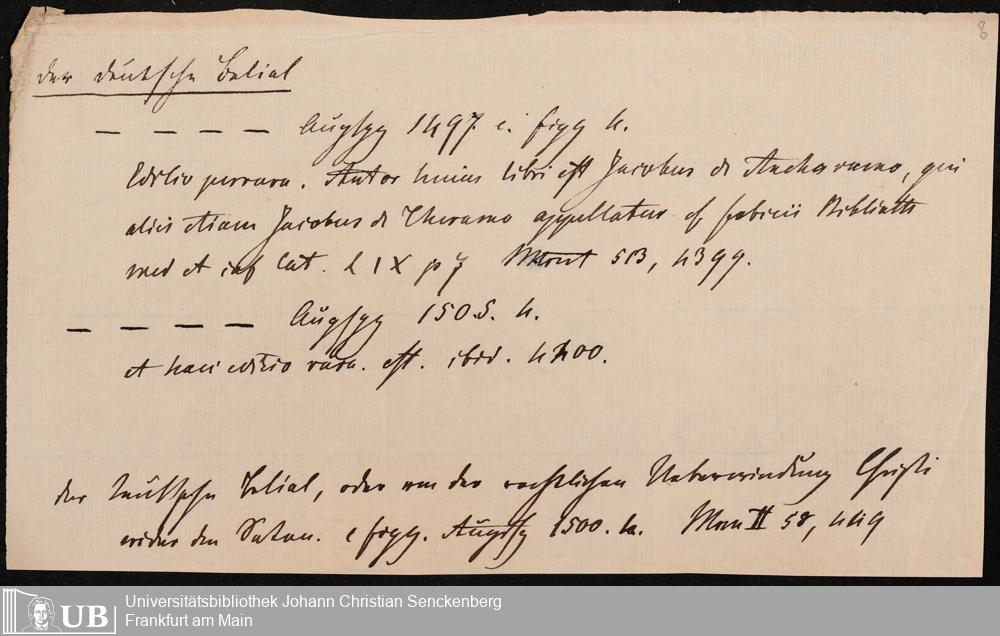 8
der deutsche Belial
— — — — Augspg 1497. c. figg 4.
Editio perrara. Autor huius libri est Jacobus de Ancharano, qui
aliis etiam Jacobus de Theramo appellatur cf fabricii Biblioth
med et inf Lat. L IX p 7 513, 4399.
— — — — Augspg 1505. 4.
et haec editio rara. est. ibid. 4400.
der teutsche Belial, oder von der rechtlichen Ueberwindung Christi
wider den Satan. c figg. Augspg 1500. 4. II 58, 449
UB Universitätsbibliothek Johann Christian Senckenberg
Frankfurt am Main